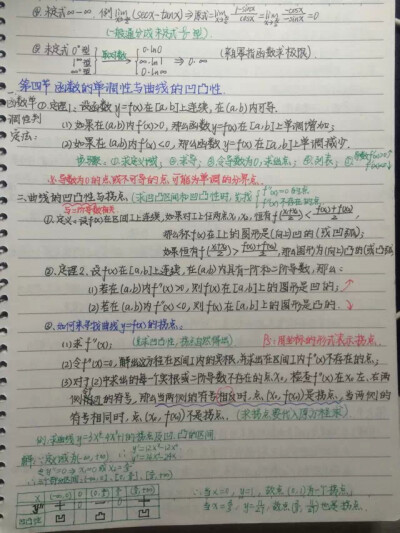 ④ 未定式 ∞-∞ 例 lim(secx-tanx) ⇒ 原式=lim (1-sinx)/cosx = lim -cosx/-sinx = 0
(一般通分成未定式 0/0 型)
⑤ 未定式 0⁰型 1^∞型 ∞⁰型 取对数 0·ln0 ∞·ln1 0·ln∞ ⇒ 0·∞ (幂指函数求极限)
第四节 函数的单调性与曲线的凹凸性
一.函数单调性判定法:
①定理1:设函数y=f(x)在[a,b]上连续,在(a,b)内可导.
(1)如果在(a,b)内f'(x)>0,那么函数y=f(x)在[a,b]上单调增加;
(2)如果在(a,b)内f'(x)<0,那么函数y=f(x)在[a,b]上单调减少.
步骤:①求定义域;②求导;③令导数为0,求出点;④列表;
导数为0的点或不可导的点可能为单调的分界点.
二.曲线的凹凸性与拐点 (求凹凸区间和凹凸性时,先找 f''(x)=0的点 f''(x)不存在的点
与二阶导数有关
①定义:设f(x)在区间I上连续,如果对I上任两点x₁,x₂,恒有f((x₁+x₂)/2)<(f(x₁)+f(x₂))/2
那么称f(x)在I上的图形是(向上)凹的(或凹弧);
如果恒有f((x₁+x₂)/2)>(f(x₁)+f(x₂))/2,那么图形为(向上)凸的(或凸弧)
②定理2.设f(x)在[a,b]上连续,在(a,b)内具有一阶和二阶导数,那么:
(1)若在(a,b)内f''(x)>0,则f(x)在[a,b]上的图形是凹的;
(2)若在(a,b)内f''(x)<0,则f(x)在[a,b]上的图形是凸的.
③.如何来寻找曲线y=f(x)的拐点:
(1)求f''(x); 用坐标的形式表示拐点.
(2)令f''(x)=0,解出这方程在区间I内的实根,并求出在区间I内f''(x)不存在的点;
(3)对于(2)中求出的每一个实根或二阶导数不存在的点x₀,检查f''(x)在x₀左、右两
侧邻近的符号,那么当两侧的符号相反时,点(x₀,f(x₀))是拐点,当两侧的
符号相同时,点(x₀,f(x₀))不是拐点.(求拐点要代入原方程求)
例:求曲线y=3x⁴-4x³+1的拐点及凹、凸的区间.
解:定义域为(-∞,+∞) y'=12x³-12x²
y''=36x²-24x
令y''=0 ⇒ x₁=0或x₂=2/3
x (-∞,0) 0 (0,2/3) 2/3 (2/3,+∞)
y'' + 0 - 0 +
凹凸性 凹 凸 凹
∴当x=0,y=1,故点(0,1)为一个拐点
当x=2/3,y=11/27,故点(2/3,11/27)也是拐点.